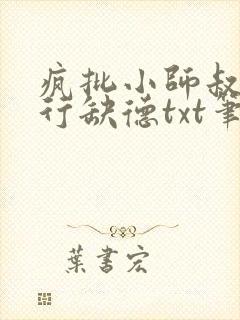 疯批小师叔
行缺德txt笔
葉書宏